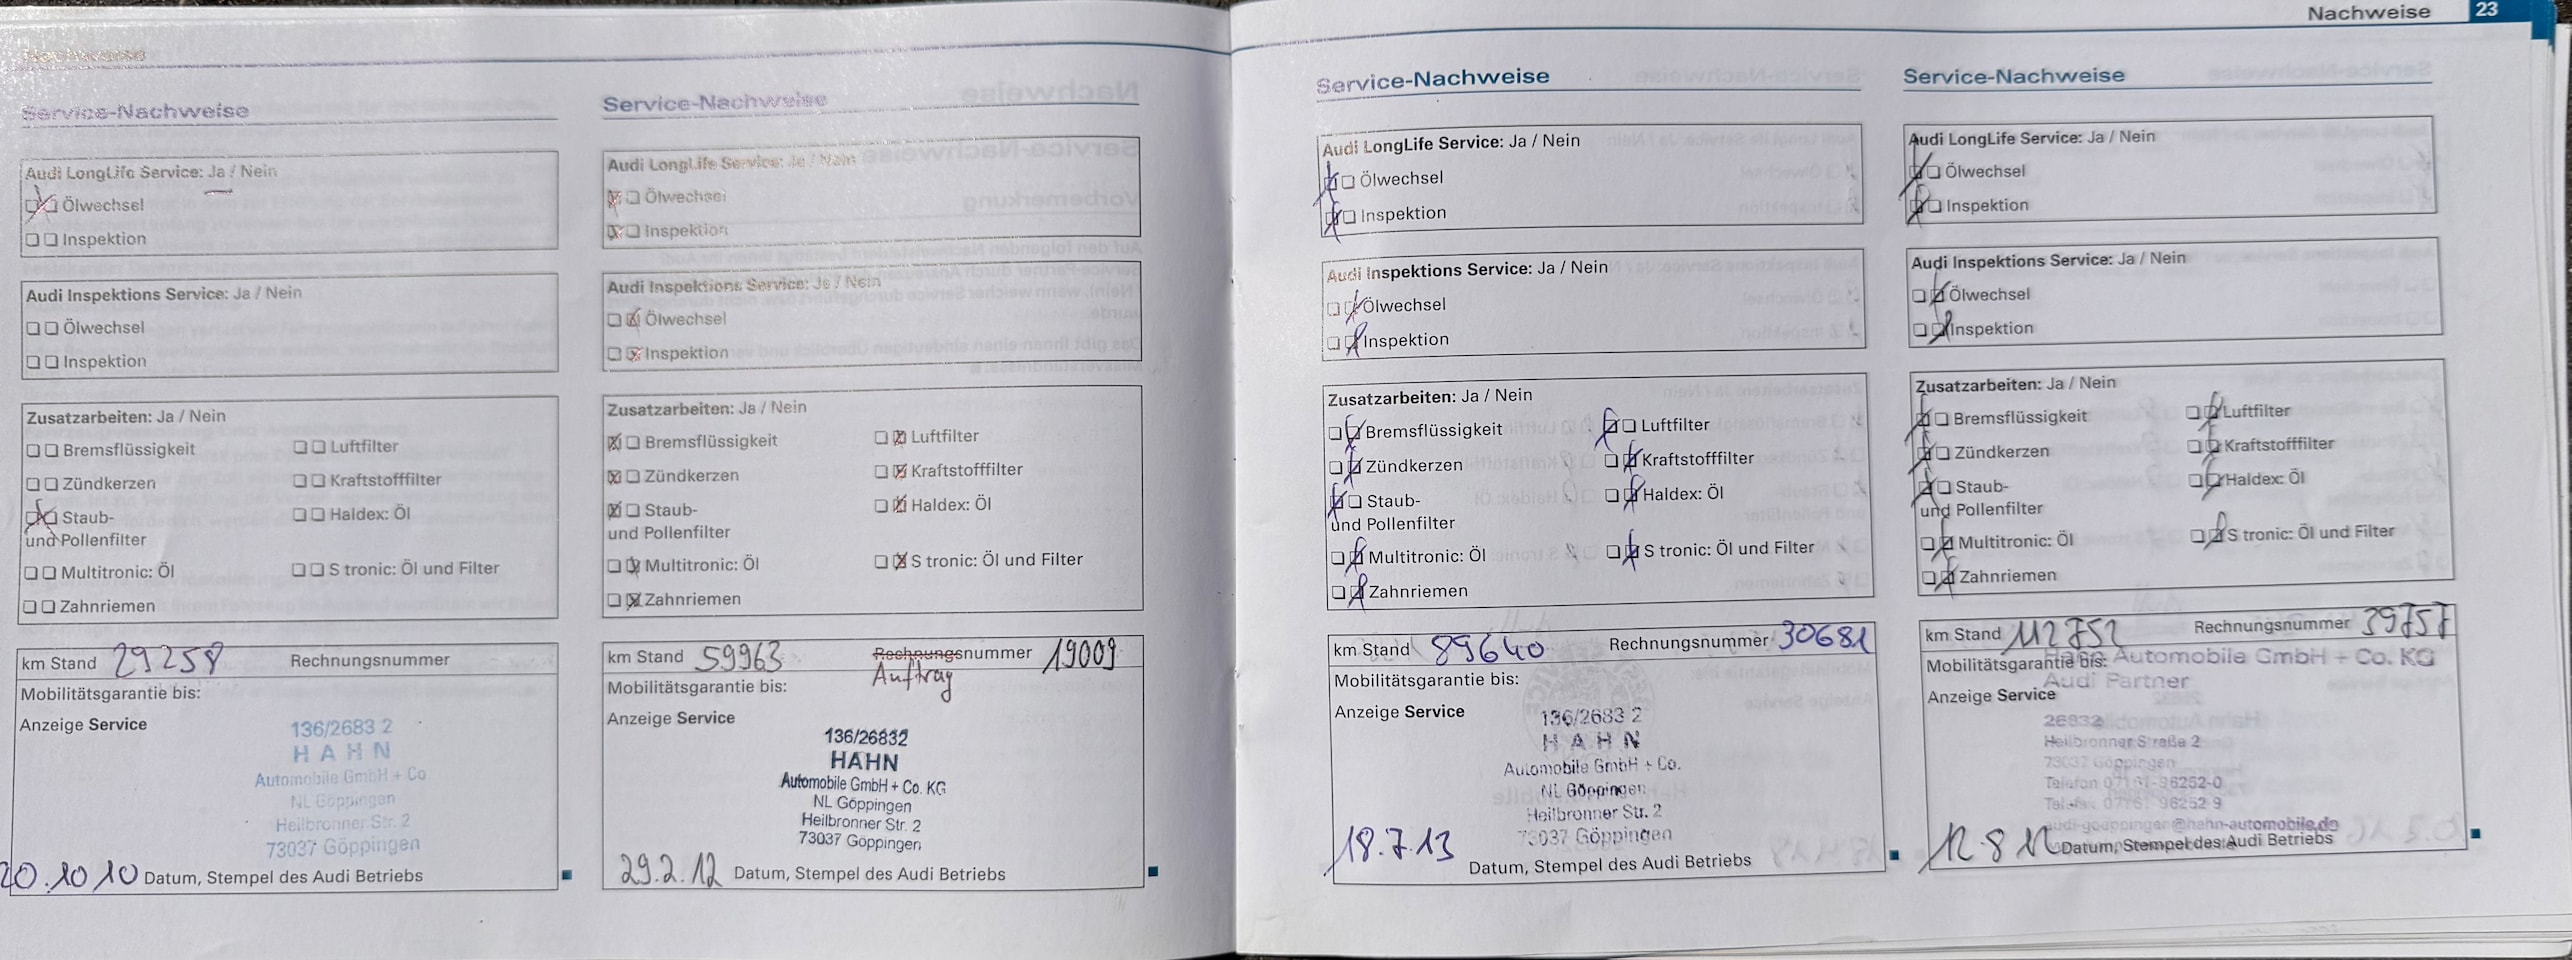 Nachweise
Service-Nachweise
Audi LongLife Service: Ja / Nein
Ölwechsel
Inspektion
Audi Inspektions Service: Ja / Nein
Ölwechsel
Inspektion
Zusatzarbeiten: Ja / Nein
Bremsflüssigkeit Luftfilter
Zündkerzen Kraftstofffilter
Staub- Haldex: Öl
und Pollenfilter
Multitronic: Öl S tronic: Öl und Filter
Zahnriemen
km Stand 29258 Rechnungsnummer
Mobilitätsgarantie bis:
Anzeige Service
136/2683 2
HAHN
Automobile GmbH + Co
NL Göppingen
Heilbronner Str. 2
73037 Göppingen
20.10.10 Datum, Stempel des Audi Betriebs
Service-Nachweise
Audi LongLife Service: Ja / Nein
Ölwechsel
Inspektion
Audi Inspektions Service: Ja / Nein
Ölwechsel
Inspektion
Zusatzarbeiten: Ja / Nein
Bremsflüssigkeit Luftfilter
Zündkerzen Kraftstofffilter
Staub- Haldex: Öl
und Pollenfilter
Multitronic: Öl S tronic: Öl und Filter
Zahnriemen
km Stand 59963 Rechnungsnummer 19009
Auftrag
Mobilitätsgarantie bis:
Anzeige Service
136/26832
HAHN
Automobile GmbH + Co. KG
NL Göppingen
Heilbronner Str. 2
73037 Göppingen
29.2.12 Datum, Stempel des Audi Betriebs
Nachweise 23
Service-Nachweise
Audi LongLife Service: Ja / Nein
Ölwechsel
Inspektion
Audi Inspektions Service: Ja / Nein
Ölwechsel
Inspektion
Zusatzarbeiten: Ja / Nein
Bremsflüssigkeit Luftfilter
Zündkerzen Kraftstofffilter
Staub- Haldex: Öl
und Pollenfilter
Multitronic: Öl S tronic: Öl und Filter
Zahnriemen
km Stand 89640 Rechnungsnummer 30681
Mobilitätsgarantie bis:
Anzeige Service
136/2683 2
HAHN
Automobile GmbH + Co.
NL Göppingen
Heilbronner Str. 2
73037 Göppingen
18.7.13
Datum, Stempel des Audi Betriebs
Service-Nachweise
Audi LongLife Service: Ja / Nein
Ölwechsel
Inspektion
Audi Inspektions Service: Ja / Nein
Ölwechsel
Inspektion
Zusatzarbeiten: Ja / Nein
Bremsflüssigkeit Luftfilter
Zündkerzen Kraftstofffilter
Staub- Haldex: Öl
und Pollenfilter
Multitronic: Öl S tronic: Öl und Filter
Zahnriemen
km Stand 112752 Rechnungsnummer 39757
Mobilitätsgarantie bis:
Hahn Automobile GmbH + Co. KG
Audi Partner
Anzeige Service
26832
Heilbronner Straße 2
73037 Göppingen
Telefon 07161-96252-0
Telefax 07161 96252 9
audi-goeppingen@hahn-automobile.de
Datum, Stempel des Audi Betriebs